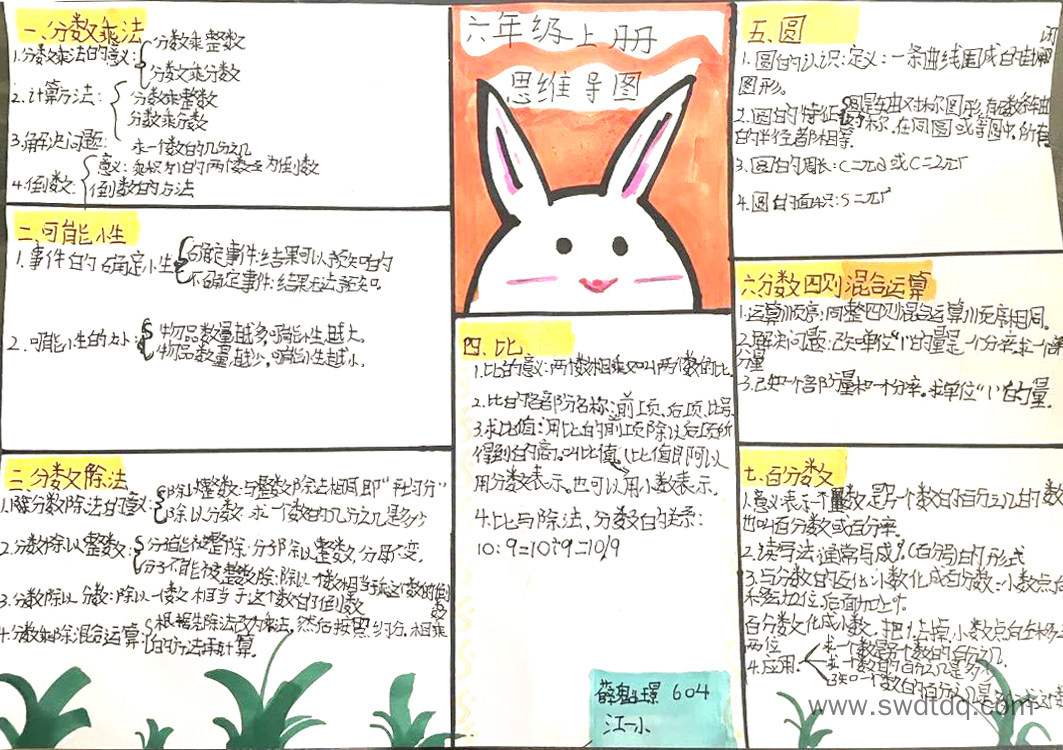 六年级上册
思维导图
一、分数乘法
1.分数乘法的意义:
分数乘整数
分数乘分数
2.计算方法:
分数乘整数
分数乘分数
3.解决问题:
求一个数的几分之几
4.倒数:
意义:乘积为1的两个数互为倒数
倒数的方法
二、可能小生
1.事件的确定小生
确定事件:结果可以预知的
不确定事件:结果无法预知
2.可能小生的大小:
物品数量越多,可能小生越大。
物品数量越少,可能小生越小。
二、分数除法
1.分数除法的意义:
除以整数:与整数除法相同即“平均分”
除以分数 求一个数的几分之几是多少
2.分数除以整数:
分子能被整除:分子除以整数,分母不变。
分子不能被整数除:除以一个数相当于乘这个数的倒数
3.分数除以分数:除以一个数 相当于这个数的倒数
4.分数乘除混合运算:
根据先除法改为乘法,然后按照约分,相乘
的方法再计算。
四、比
1.比的意义:两个数相乘又叫两个数的比。
2.比的各部分名称:前项、后项、比号
3.求比值:用比的前项除以后项所
得到的商。叫比值。(比值即可以
用分数表示。也可以用小数表示。
4.比与除法、分数的关系:
10:9=10÷9=10/9
薛 璟 604
江一小
五、圆
1.圆的认识:定义:一条曲线围成的封闭
图形。
2.圆的特征:圆是轴对称图形,有无数条轴
对称,在同圆或等圆中,所有
的半径都相等。
3.圆的周长:C=πd或C=2πr
4.圆的面积:S=πr²
六分数四则混合运算
1.运算顺序:同整四则混合运算顺序相同。
2.解决问题:已知单位“1”的量是一个分率求一个部
分量
3.已知一个部分量和一个分率。求单位“1”的量.
七.百分数
1.意义:表示一个数是另一个数的百分之几的数
也叫百分数或百分率。
2.读写法 通常写成%(百分号)的形式
3.与分数的互化:小数化成百分数:小数点向
移动位,后面加上%.
百分数化成小数,把%去掉,小数点向左移动
两位
4.应用.
求一个数是另一个数的百分之几
求一个数的百分之几是多少
已知一个数的百分之几是多少求这
www.swdtdq.com